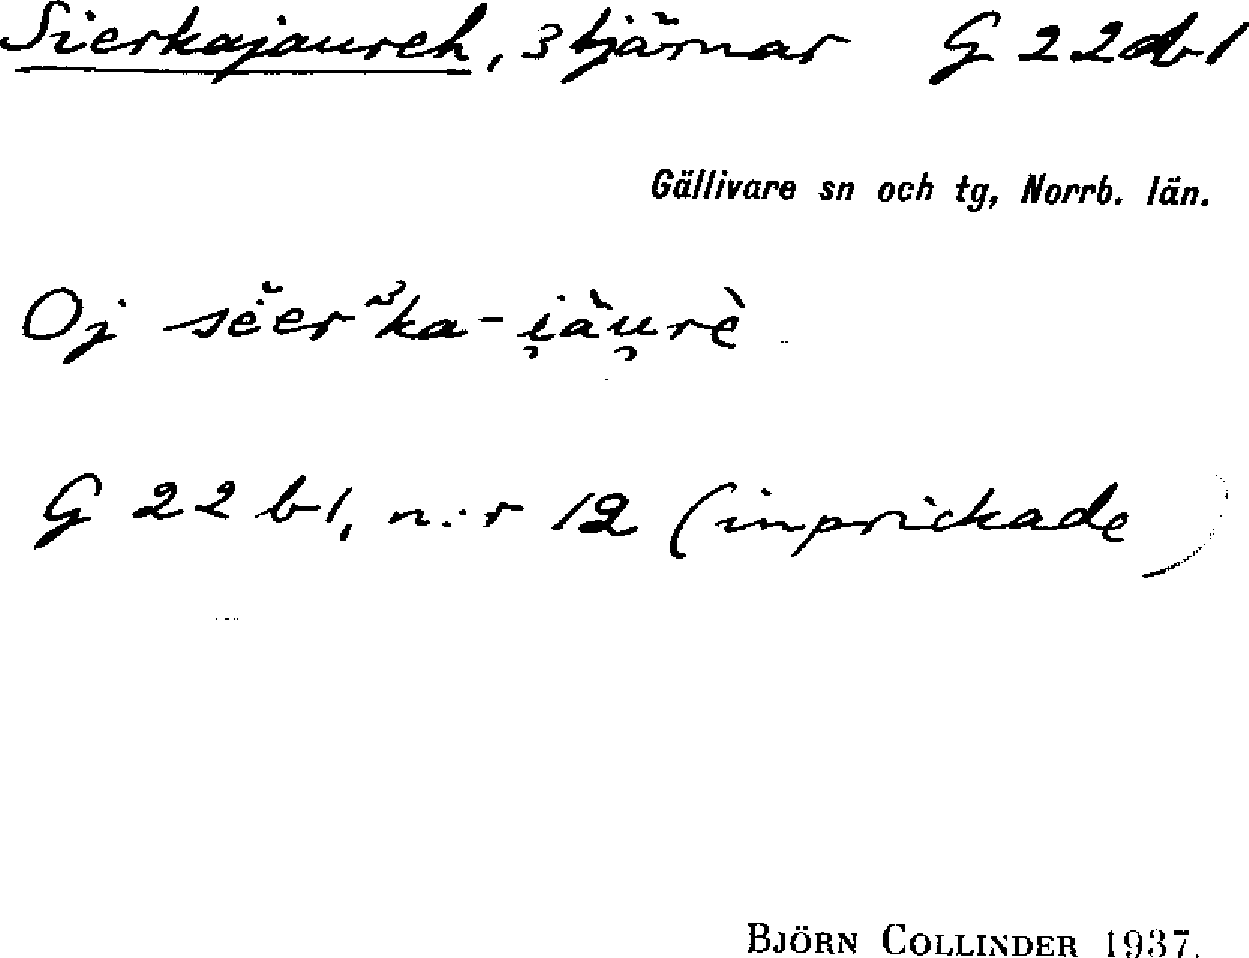 Sierkajaureh, 3 tjärnar G 22 b 1
Gällivare sn och tg, Norrb. län.
Oj sĕ̀er ka - i̯àu̯rè
G 22 b 1, n:r 12 (inprickade)
BJÖRN COLLINDER 1937.